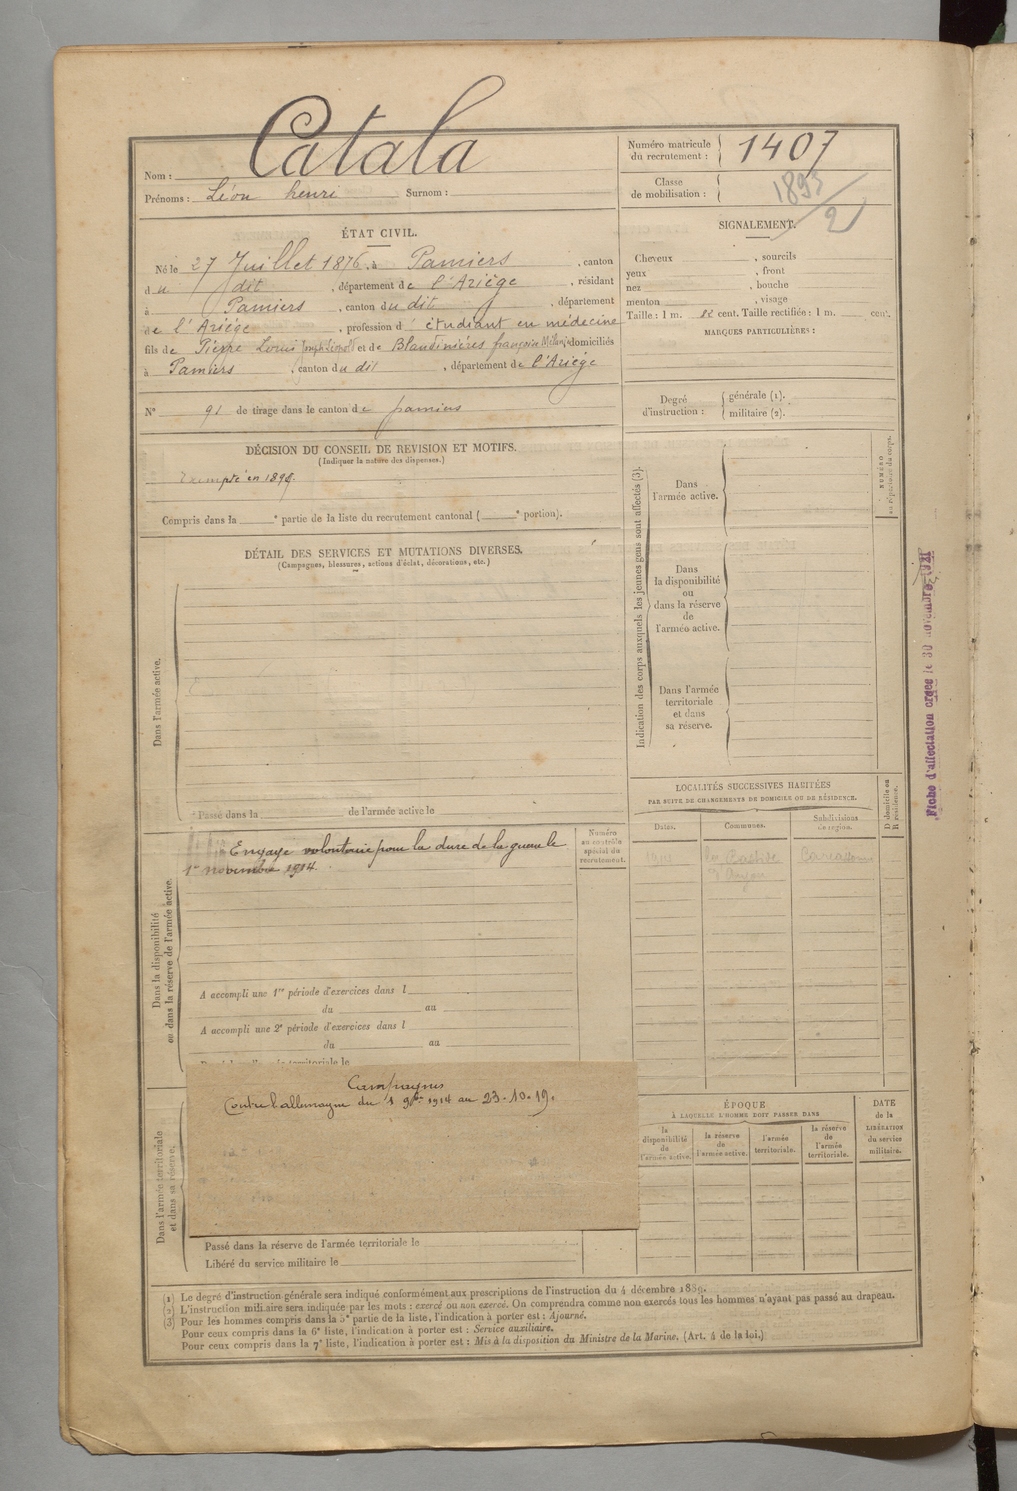 Catala
Nom :
Prénoms : Léon henri Surnom :
Numéro matricule
du recrutement : 1407
Classe
de mobilisation : 1893/2
ÉTAT CIVIL.
Né le 27 Juillet 1876, à Pamiers, canton
du dit, département de l'Ariège, résidant
à Pamiers, canton du dit, département
de l'Ariège, profession d'étudiant en médecine
fils de Pierre Louis Joseph et de Blandinières françoise domiciliés
à Pamiers, canton du dit, département de l'Ariège
N° 91 de tirage dans le canton de pamiers
SIGNALEMENT.
Cheveux , sourcils
yeux , front
nez , bouche
menton , visage
Taille : 1 m. 82 cent. Taille rectifiée : 1 m. cent.
MARQUES PARTICULIÈRES :
Degré
d'instruction :
générale (1).
militaire (2).
DÉCISION DU CONSEIL DE REVISION ET MOTIFS.
(Indiquer la nature des dispenses.)
Exempté en 1898.
Compris dans la e partie de la liste du recrutement cantonal ( e portion).
DÉTAIL DES SERVICES ET MUTATIONS DIVERSES.
(Campagnes, blessures, actions d'éclat, décorations, etc.)
Dans l'armée active.
Passé dans la de l'armée active le
Indication des corps auxquels les jeunes gens sont affectés (3).
Dans
l'armée active.
Dans
la disponibilité
ou
dans la réserve
de
l'armée active.
Dans l'armée
territoriale
et dans
sa réserve.
NUMÉRO
au répertoire du corps.
Fiche d'affectation créée le 30 novembre 1921
LOCALITÉS SUCCESSIVES HABITÉES
PAR SUITE DE CHANGEMENTS DE DOMICILE OU DE RÉSIDENCE.
Dates.
Communes.
Subdivisions
de région.
D domicile ou
R résidence.
La Bastide Carcassonne
d'Anjou
Dans la disponibilité
ou dans la réserve de l'armée active.
Engagé volontaire pour la durée de la guerre le
1er novembre 1914.
Numéro
au contrôle
spécial du
recrutement.
A accompli une 1re période d'exercices dans l
du au
A accompli une 2e période d'exercices dans l
du au
Campagnes
Contre l'allemagne du 1 9bre 1914 au 23.10.19.
Dans l'armée territoriale
et dans sa réserve.
Passé dans la réserve de l'armée territoriale le
Libéré du service militaire le
ÉPOQUE
À LAQUELLE L'HOMME DOIT PASSER DANS
la
disponibilité
de
l'armée active.
la réserve
de
l'armée active.
l'armée
territoriale.
la réserve
de
l'armée
territoriale.
DATE
de la
LIBÉRATION
du service
militaire.
(1) Le degré d'instruction générale sera indiqué conformément aux prescriptions de l'instruction du 4 décembre 1889.
(2) L'instruction militaire sera indiquée par les mots : exercé ou non exercé. On comprendra comme non exercés tous les hommes n'ayant pas passé au drapeau.
(3) Pour les hommes compris dans la 5e partie de la liste, l'indication à porter est : Ajourné.
Pour ceux compris dans la 6e liste, l'indication à porter est : Service auxiliaire.
Pour ceux compris dans la 7e liste, l'indication à porter est : Mis à la disposition du Ministre de la Marine. (Art. 4 de la loi.)